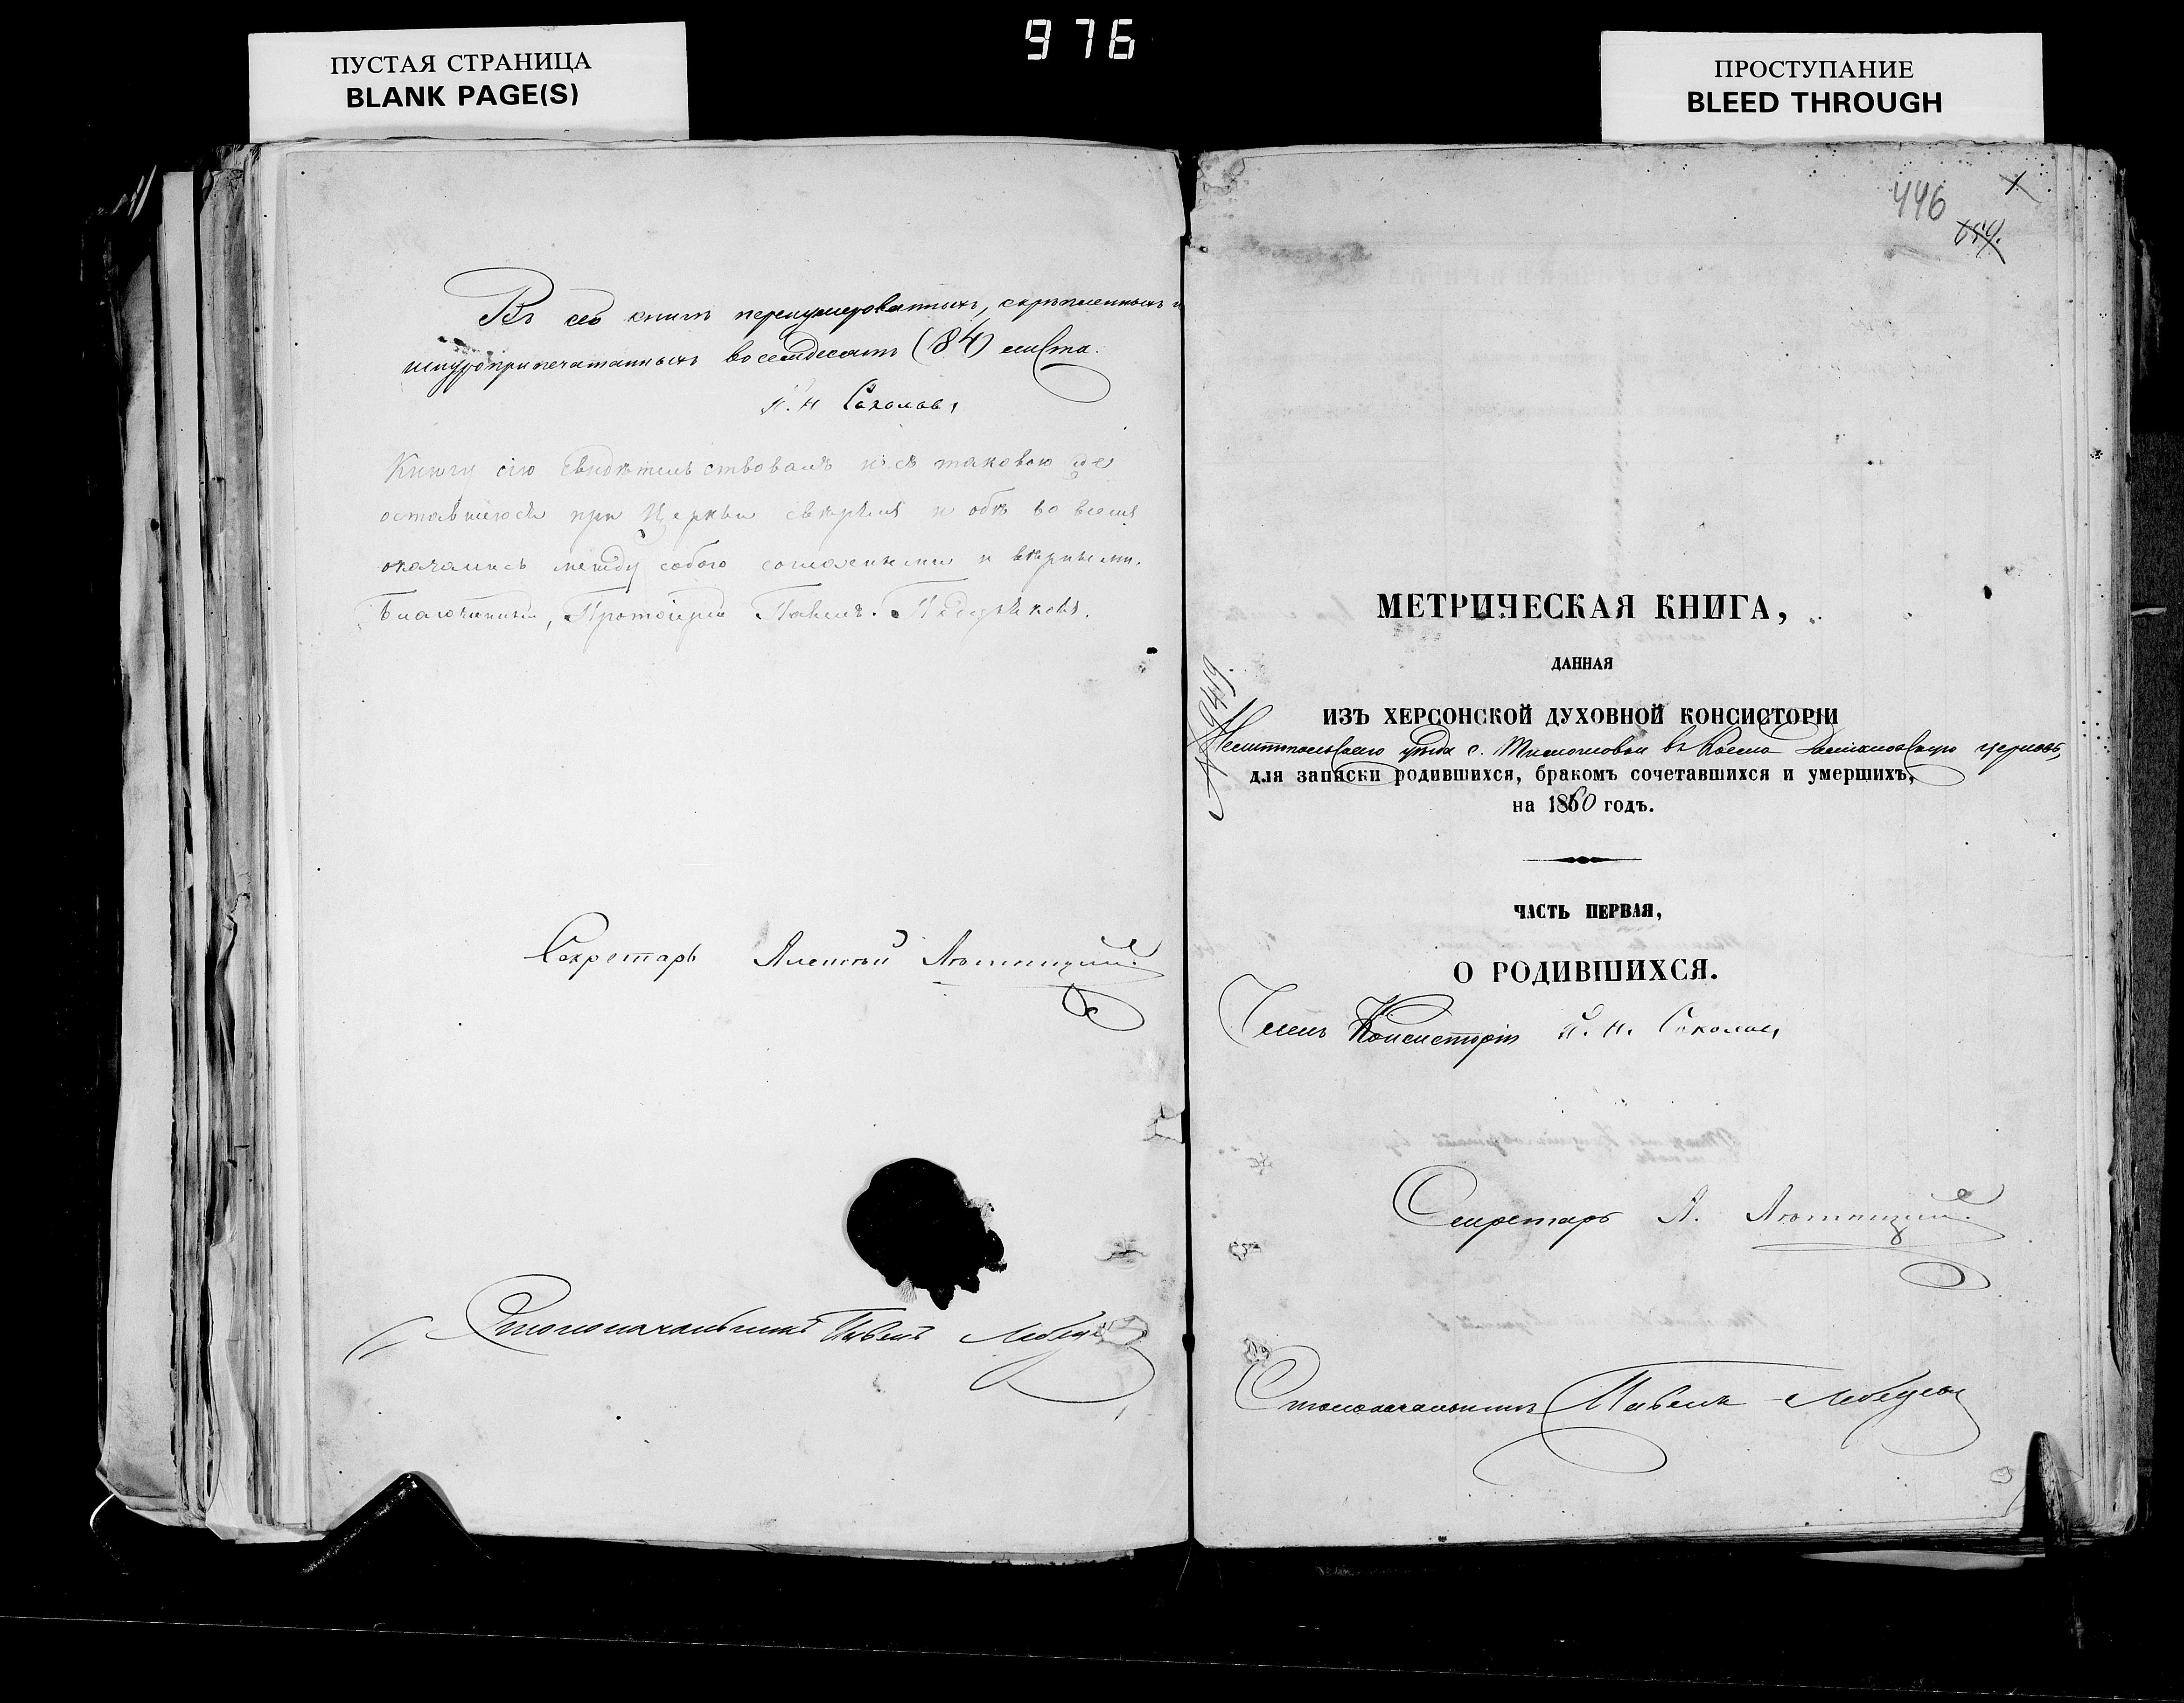 976
ПУСТАЯ СТРАНИЦА
BLANK PAGE(S)
ПРОСТУПАНИЕ
BLEED THROUGH
Въ сей книгѣ перенумерованныхъ, скрѣпленныхъ и
шнуроприпечатанныхъ восемдесятъ (84) листа.
Соколовъ
Книгу сію свидѣтельствовалъ и съ таковою же
оставшеюся при Церкви свѣрялъ и обѣ во всемъ
оказались между собою согласными и вѣрными.
Благочинный, Протоіерей Павелъ
Секретарь Алексѣй
Столоначальникъ Павелъ Лебедевъ
446
1
МЕТРИЧЕСКАЯ КНИГА,
ДАННАЯ
ИЗЪ ХЕРСОНСКОЙ ДУХОВНОЙ КОНСИСТОРІИ
уѣзда с. въ церковь,
для записки родившихся, бракомъ сочетавшихся и умершихъ,
на 1860 годъ.
ЧАСТЬ ПЕРВАЯ,
О РОДИВШИХСЯ.
Членъ Консисторіи Соколовъ
Секретарь А.
Столоначальникъ Павелъ Лебедевъ